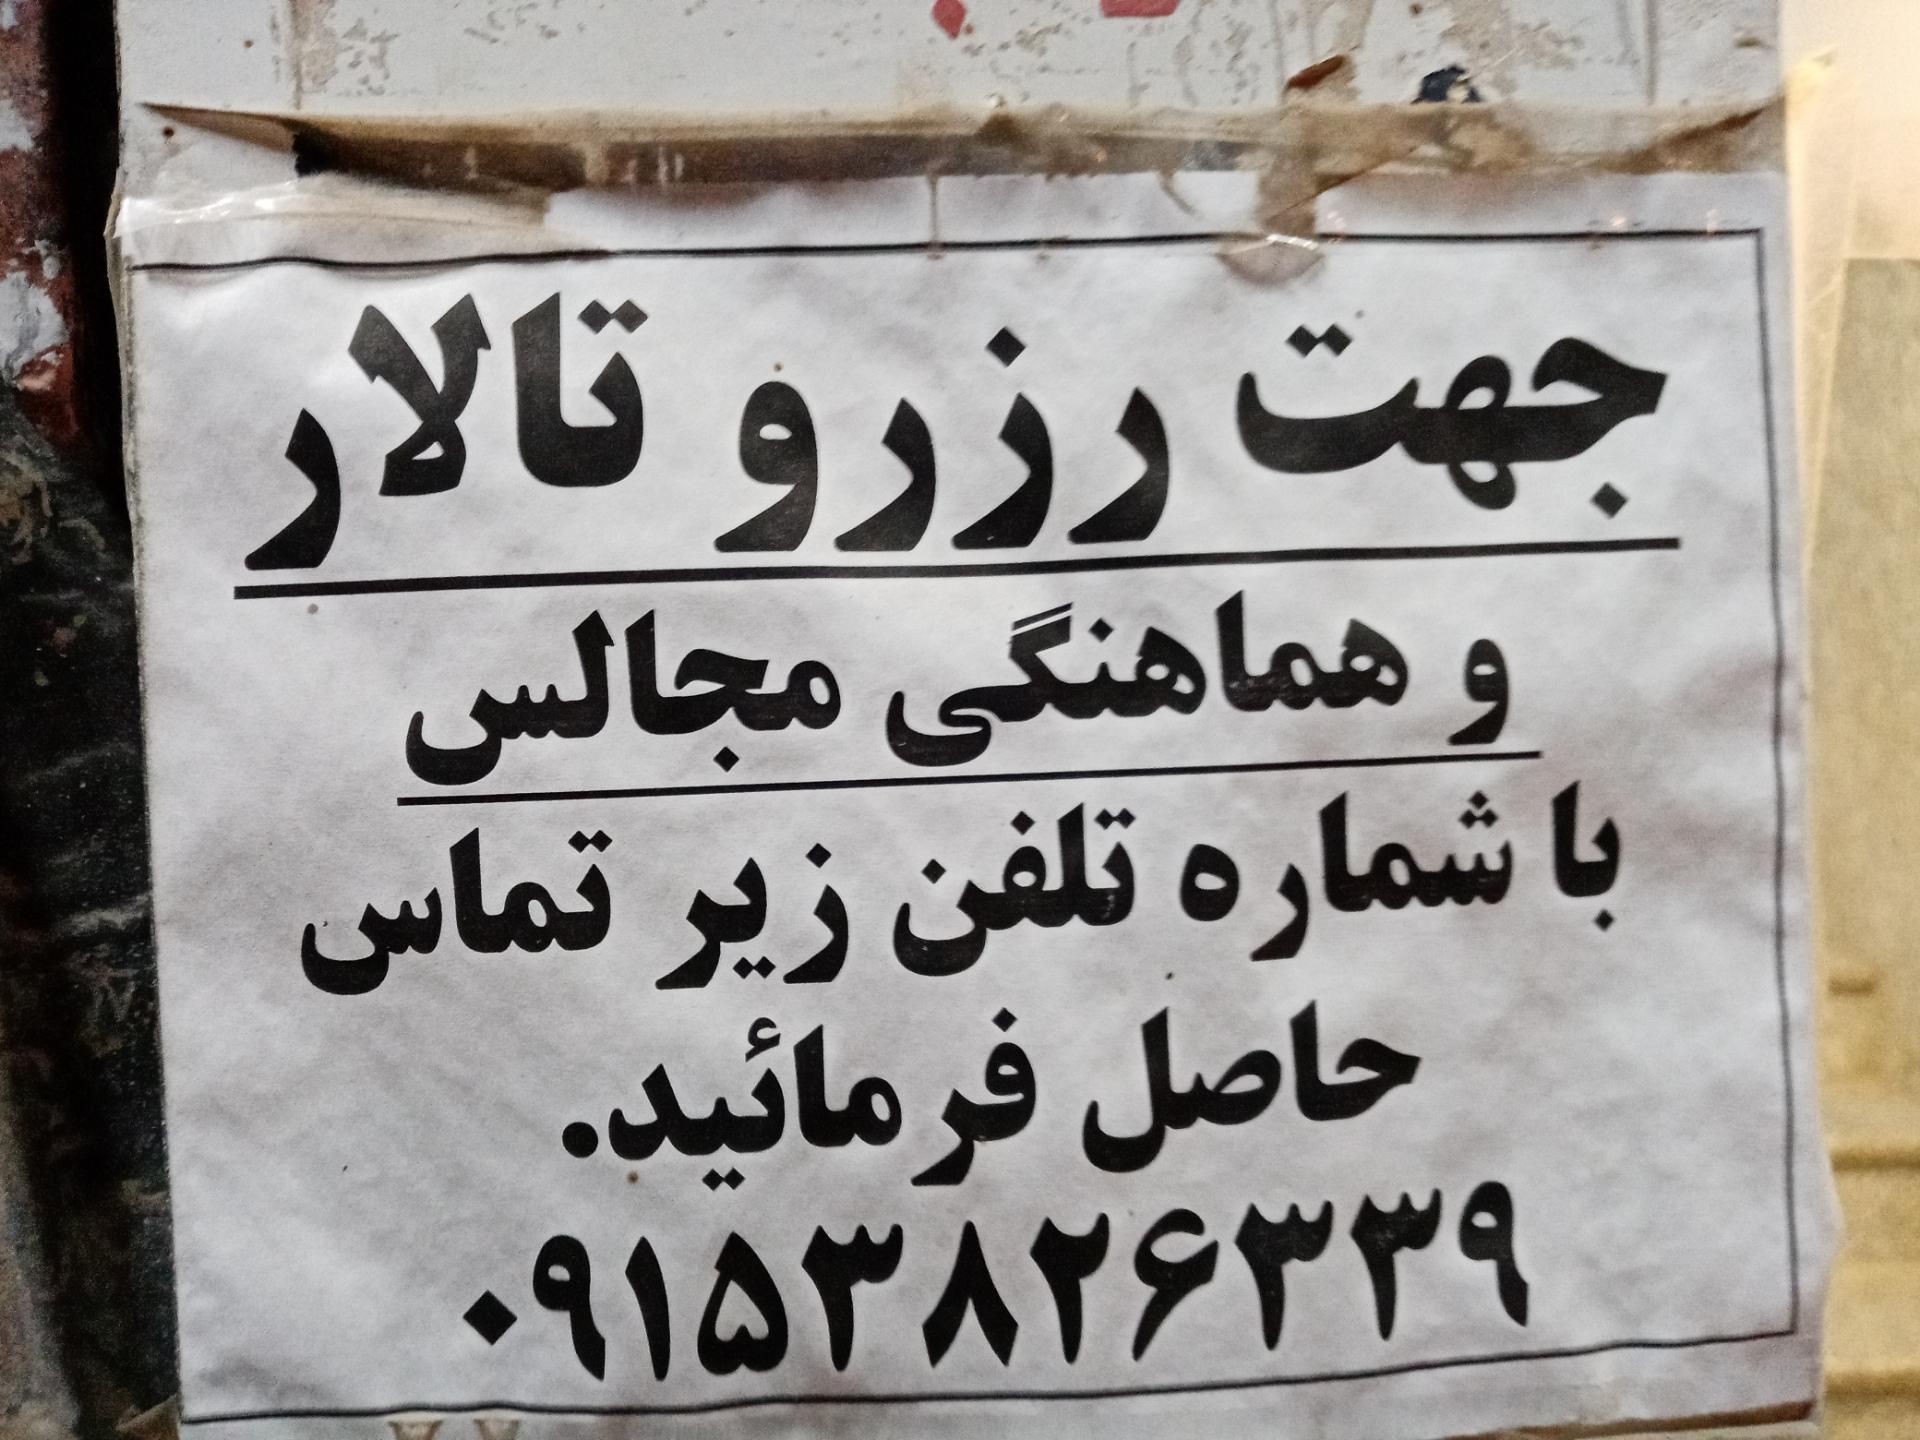 جهت رزرو تالار
و هماهنگی مجالس
با شماره تلفن زیر تماس
حاصل فرمائید.
۰۹۱۵۳۸۲۶۳۳۹